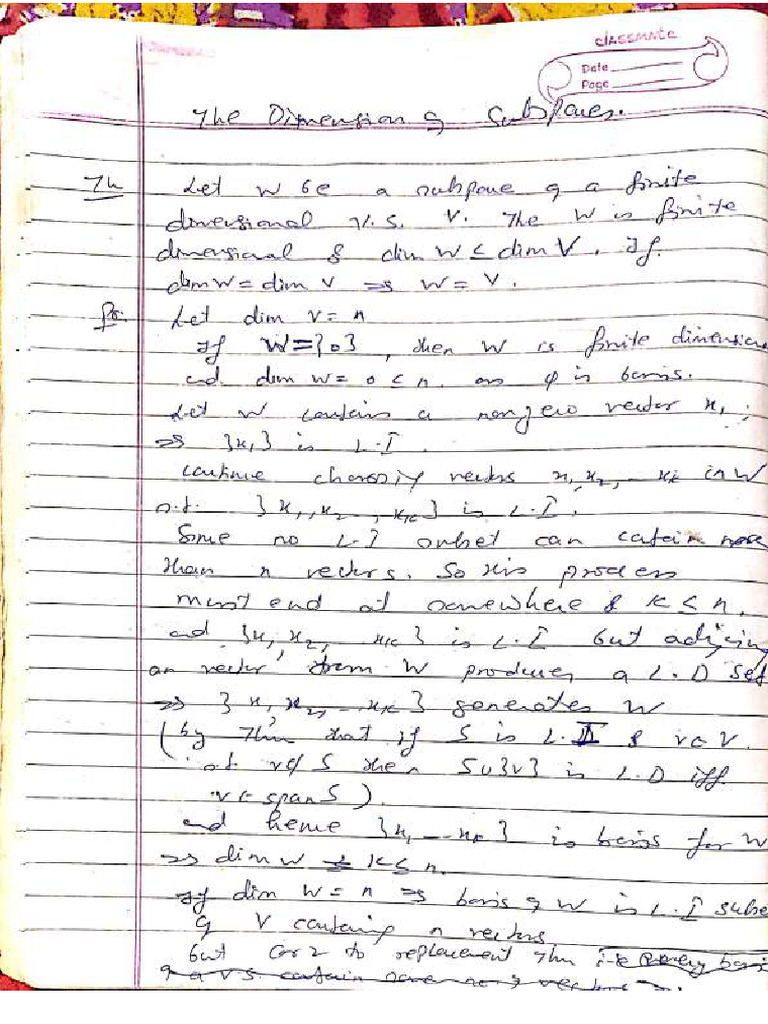 classmate
Date
Page
The Dimension of Subspaces.
Th Let W be a subspace of a finite
dimensional V.S. V. The W is finite
dimensional & dim W ≤ dim V. If
dim W = dim V ⇒ W = V.
Pf: Let dim V = n
If W = {0}, then W is finite dimension
and dim W = 0 ≤ n. as φ is basis.
Let W contains a nonzero vector x₁,
⇒ {x₁} is L.I.
continue choosing vectors x₁, x₂, - xk in W
s.t. {x₁, x₂, xk} is L.I.
Since no L.I subset can contain more
than n vectors. So this process
must end at somewhere & k ≤ n.
and {x₁, x₂, xk} is L.I but adjoining
an vector from W produces a L.D set
⇒ {x₁, x₂, - xk} generates W
(by Thm that if S is L.I & v ∈ V
s.t. v ∉ S then S ∪ {v} is L.D iff
v ∈ span S).
and hence {x₁, - xk} is basis for W
⇒ dim W = k ≤ n.
If dim W = n ⇒ basis of W is L.I subse
of V containing n vectors
but Cor 2 to replacement Thm i.e every basis
of a V.S. contain same no. of vectors.